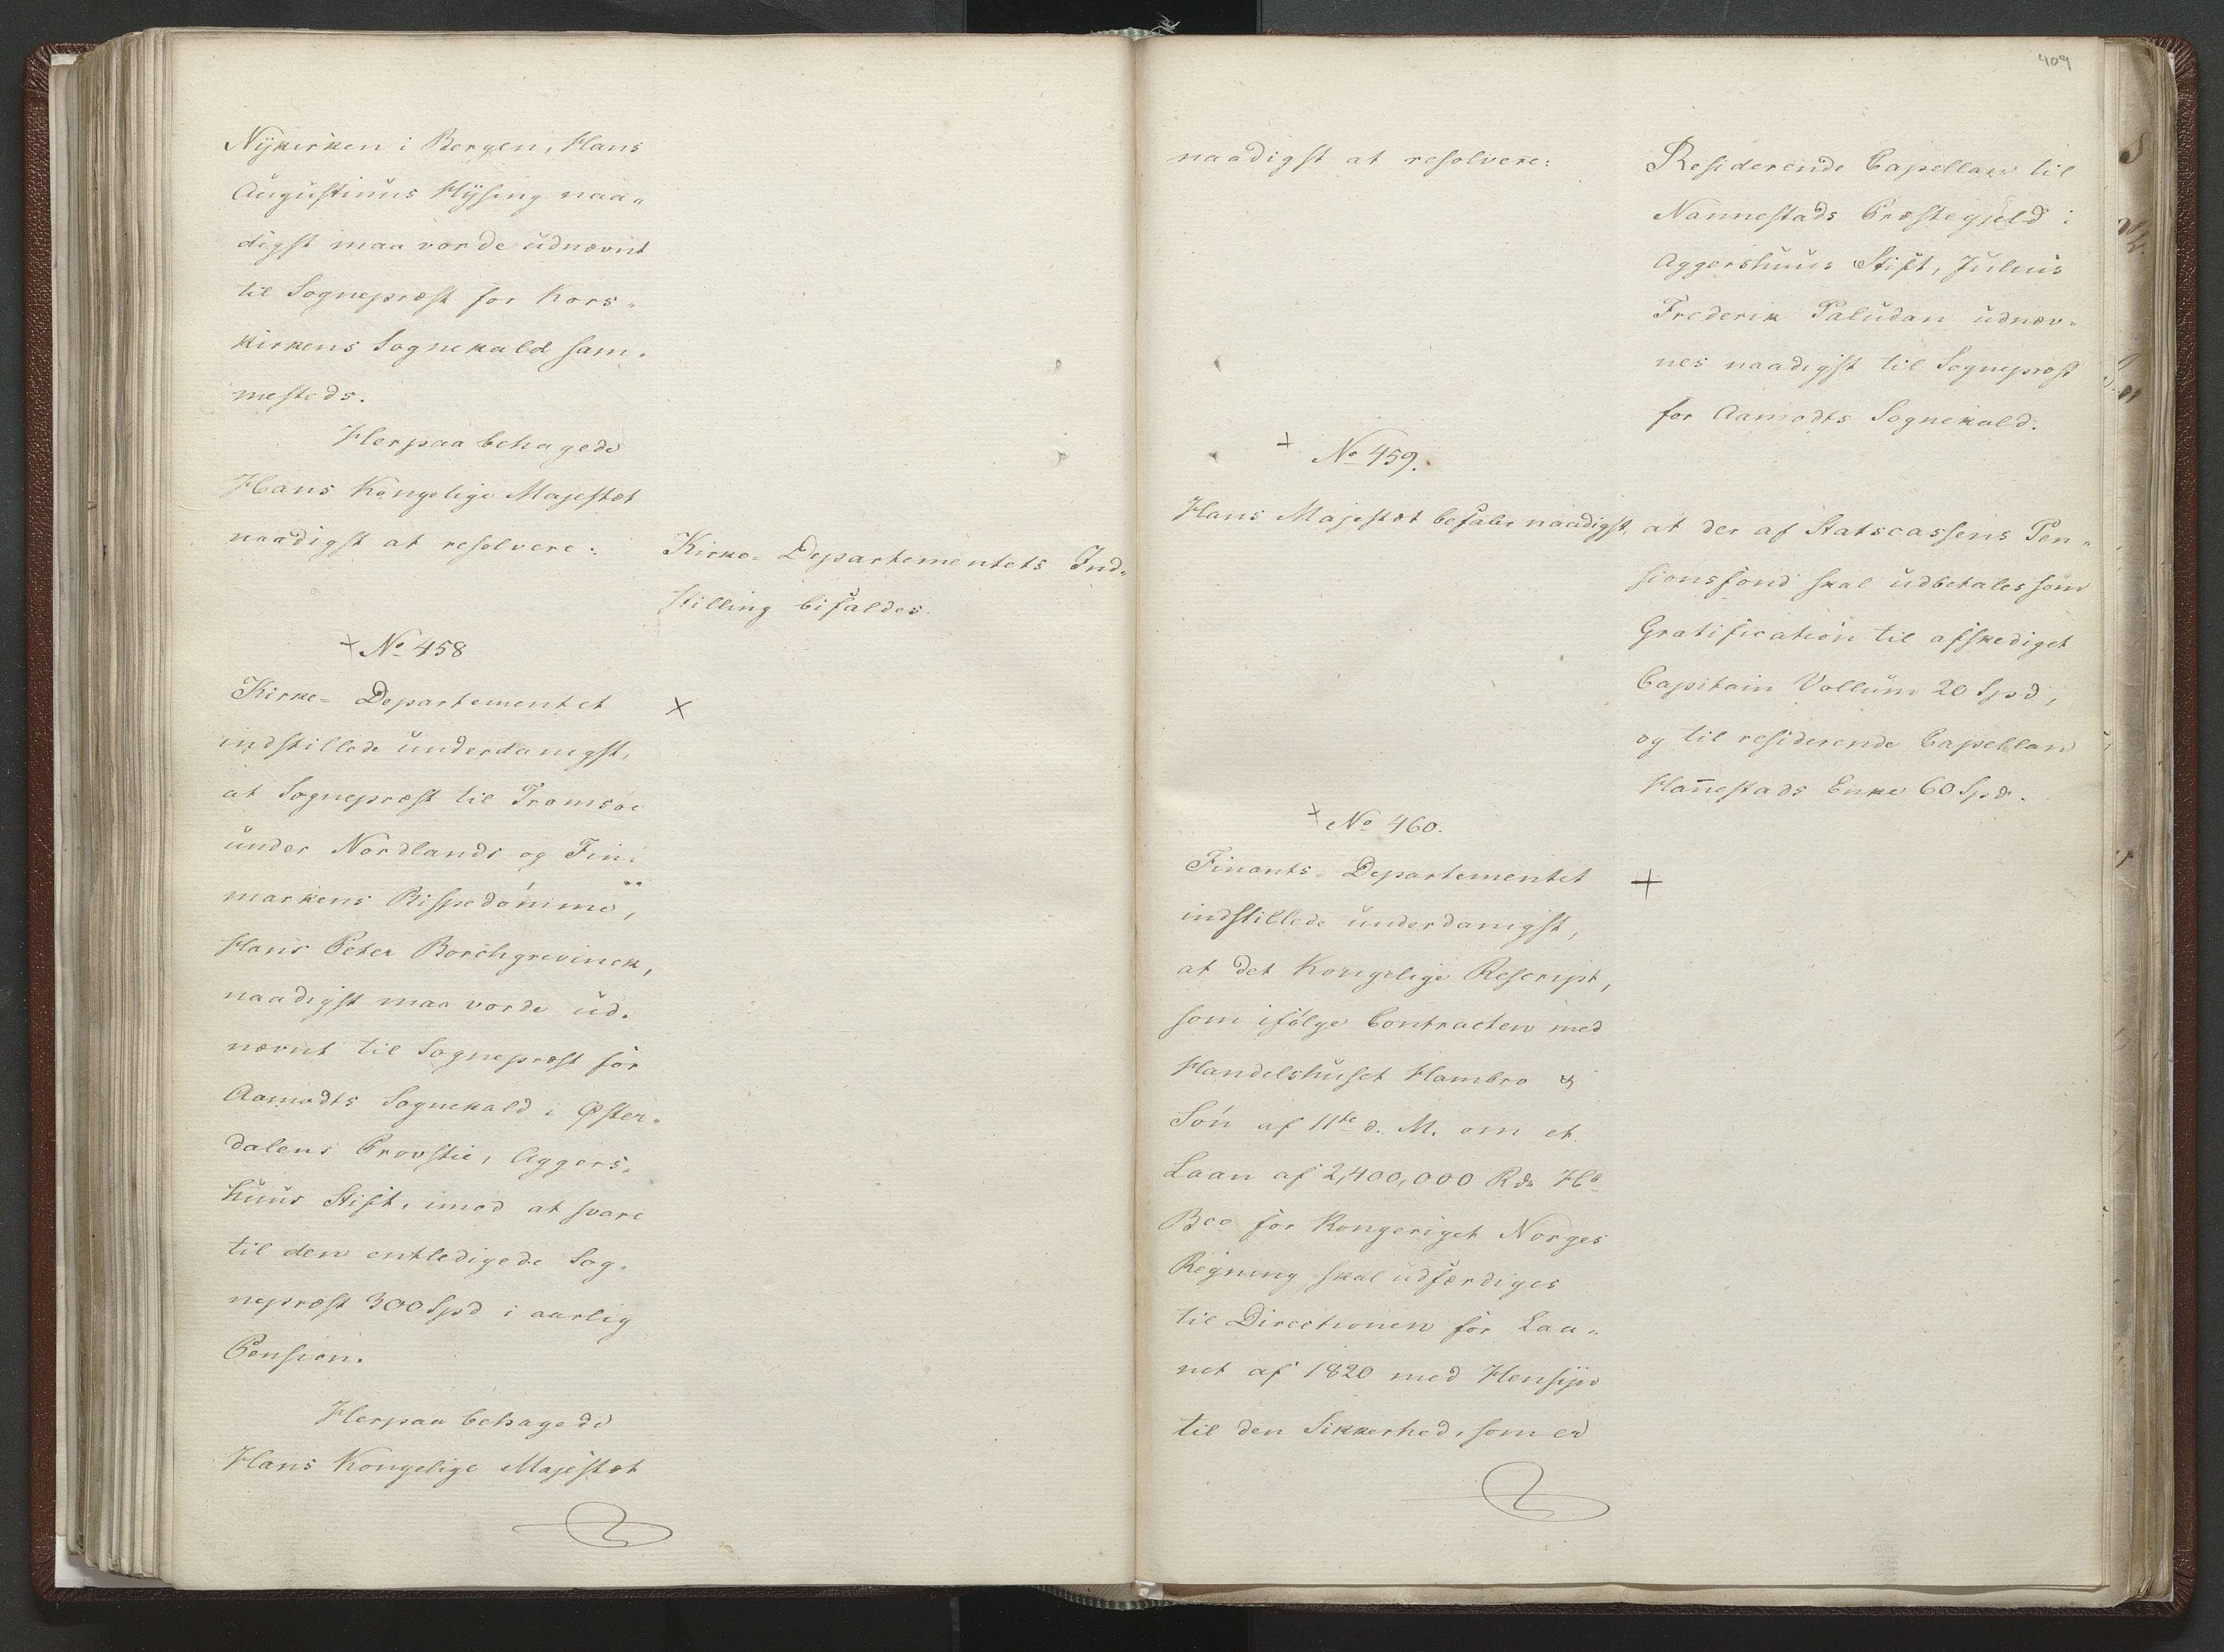 Nÿkirken i Bergen, Hans
Augustinus Hÿsing naa„
digst maa vorde udnævnt
til Sognepræst for Kors„
kirkens Sognekald sam„
mesteds.
Herpaa behagede
Hans Kongelige Majestæt
naadigst at resolvere:
Kirke-Departementets Ind„
stilling bifaldes.
+ No 458
Kirke-Departementet
×
indstillede underdanigst,
at Sognepræst til Tromsøe
under Nordlands og Fin„
markens Bispedömme,
Hans Peter Borchgrevinck,
naadigst maa vorde ud„
nævnt til Sognepræst for
Aamodts Sognekald i Øster„
dalens Provstie, Aggers„
huus Stift, imod at svare
til den entledigede Sog„
nepræst 300 Spd i aarlig
Pension.
Herpaa behagede
Hans Kongelige Majestæt
409
naadigst at resolvere:
Residerende Capellan til
Nannestads Præstegjeld i
Aggershuus Stift, Julius
Frederik Paludan udnæv„
nes naadigst til Sognepræst
for Aamodts Sognekald.
+ No 459.
Hans Majestæt befaler naadigst, at der af Statscassens Pen„
sionsfond skal udbetales som
Gratification til afskediget
Capitain Vollum 20 Spd,
og til residerende Capellan
Han̄estads Enke 60 Spd.
+ No 460.
Finants-Departementet
+
indstillede underdanigst,
at det Kongelige Rescript,
som ifölge Contracten med
Handelshuset Hambro &
Sön af 11te d. M. om et
Laan af 2,400,000 Rdr Hbg
Bco for Kongeriget Norges
Regning skal udfærdiges
til Directionen for Laa„
net af 1820 med Hensÿn
til den Sikkerhed, som er